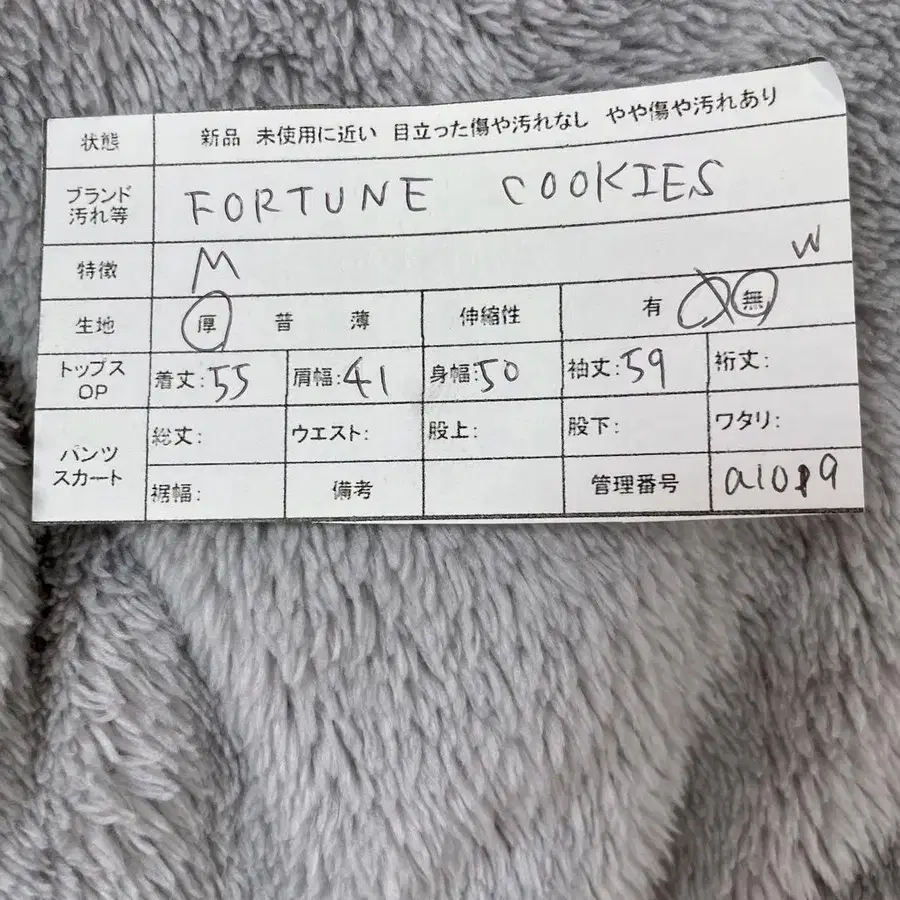 状態 新品 未使用に近い 目立った傷や汚れなし やや傷や汚れあり
ブランド 汚れ等 FORTUNE COOKIES
特徴 M W
生地 厚 普 薄 伸縮性 有 無
トップス OP 着丈:55 肩幅:41 身幅:50 袖丈:59 裄丈:
パンツ スカート 総丈: ウエスト: 股上: 股下: ワタリ:
裾幅: 備考 管理番号 a1019